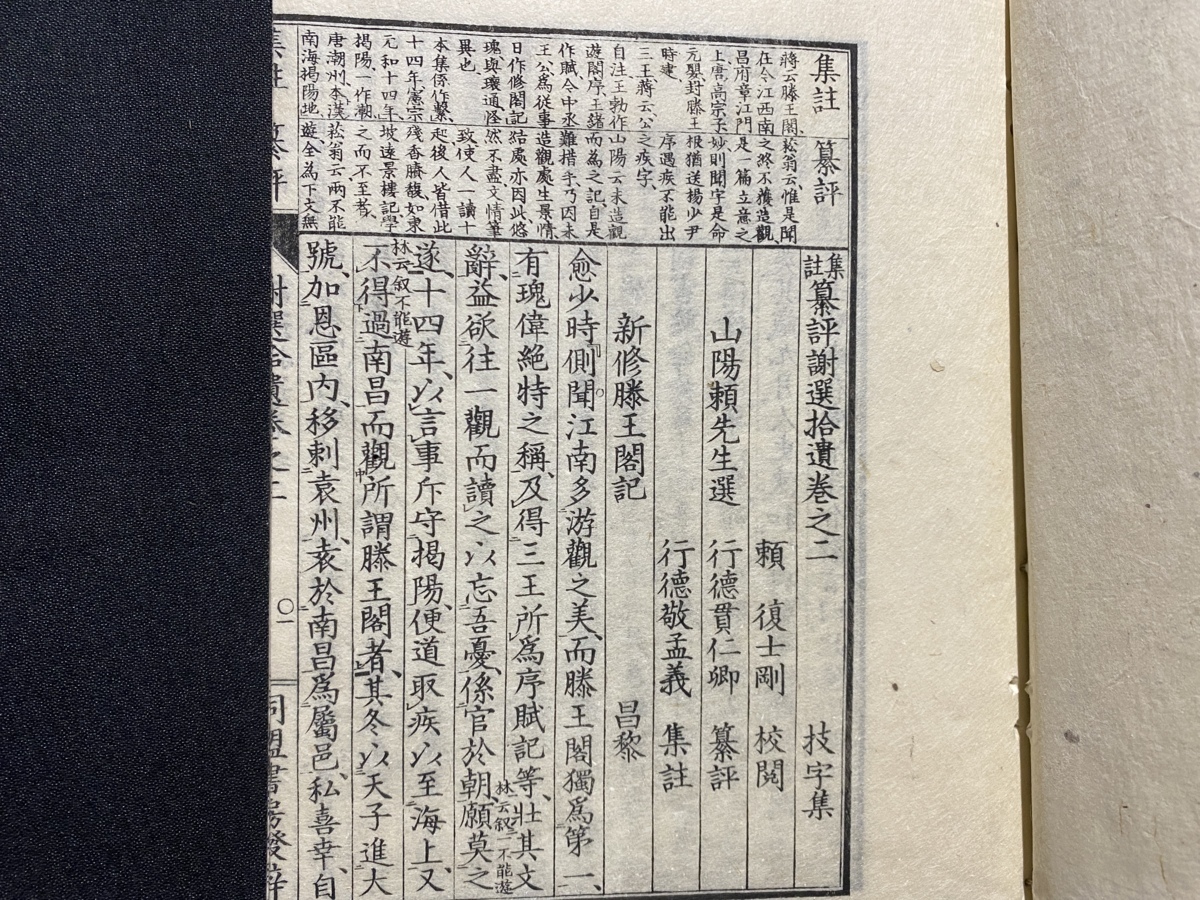 集註
蔣云滕王閣
在今江西南
昌府章江門
上唐高宗子
元嬰封滕王
時建
三王蔣云公
自注王勃作
遊閣序王緒
作賦今中丞
王公為從事
日作修閣記
瑰與瓌通怪
異也
本集係作繫
十四年憲宗
元和十四年
揭陽一作潮
唐潮州本漢
南海揭陽地
纂評
菘翁云惟是聞
之終不獲造觀
是一篇立意之
妙則聞字是命
根猶送楊少尹
序遇疾不能出
之疾字
山陽云未造觀
而為之記自是
難措手乃因未
造觀處生景情
結處亦因此悠
然不盡文情筆
致使人一讀十
起後人皆借此
殘香賸馥如東
坡遠景樓記學
之而不至者
菘翁云兩不能
遊全為下文無
集註纂評謝選拾遺卷之二 技字集
頼 復士剛 校閲
山陽頼先生選 行德貫仁卿 纂評
行德敬孟義 集註
新修滕王閣記 昌黎
愈少時側聞江南多游觀之美而滕王閣獨爲第一
有瑰偉絶特之稱及得三王所爲序賦記等壯其文
辭益欲往一觀而讀之以忘吾憂係官於朝願莫之
林云叙一不能遊
遂十四年以言事斥守揭陽便道取疾以至海上又
林云叙不能遊
不得過南昌而觀所謂滕王閣者其冬以天子進大
號加恩區内移刺袁州袁於南昌爲屬邑私喜幸自
集註 纂評
謝選拾遺卷之二
〇一
同盟書房發兌